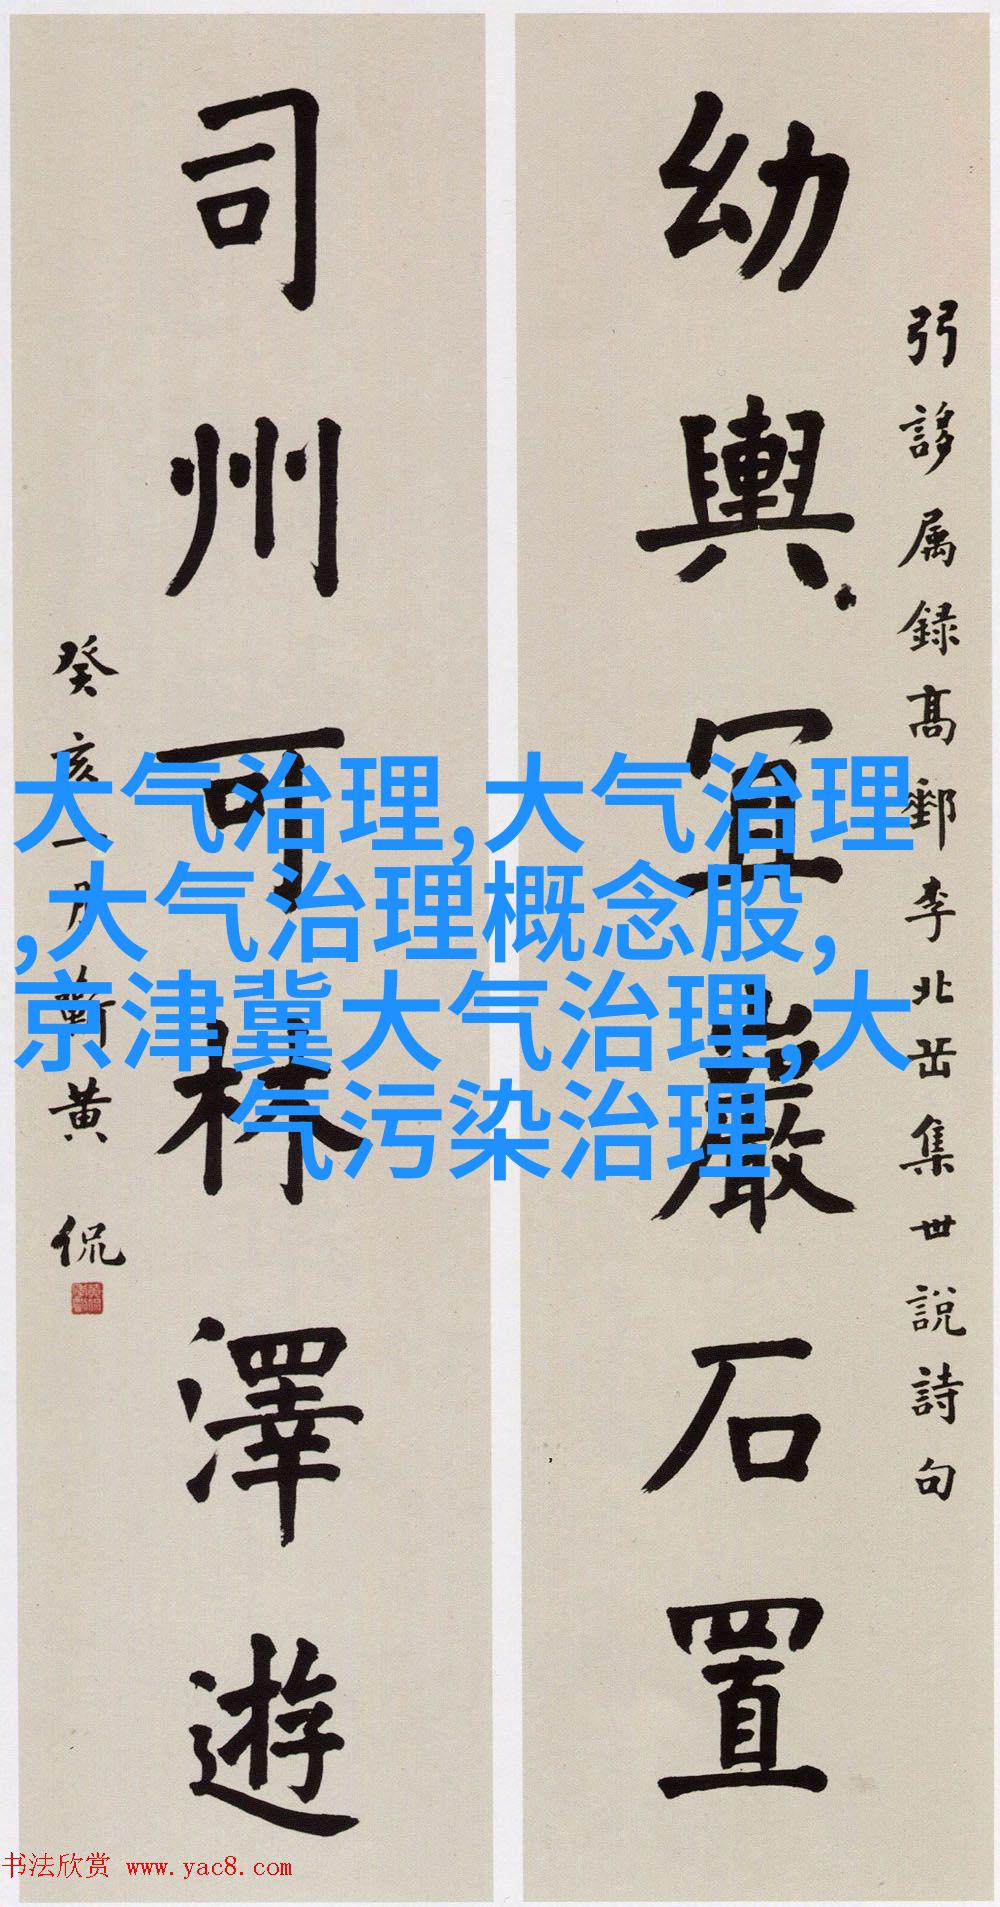 弜誃属録髙郵李北岳集世説詩句
幼輿冝巖石置
司州可林澤遊
癸亥月蘄黄侃
大气治理,大气治理
,大气治理概念股,
京津冀大气治理,大
气污染治理
书法欣赏 www.yac8.com